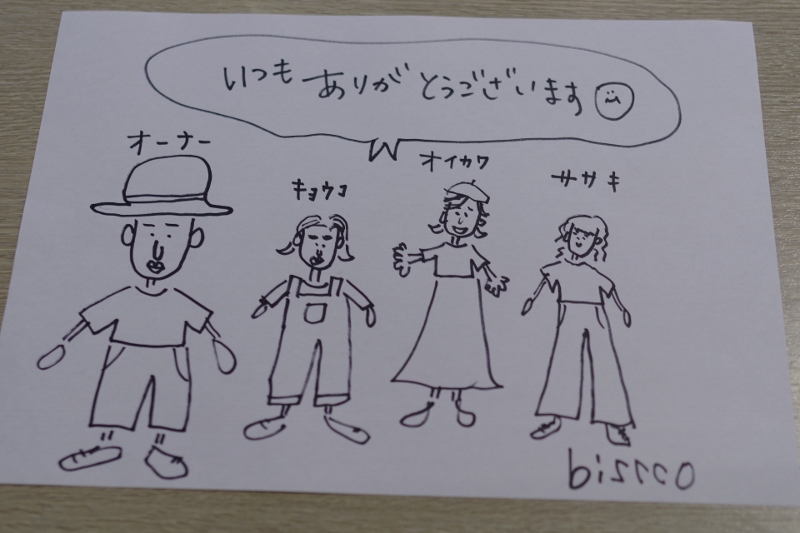 いつも ありがとうございます
オーナー
キョウコ
オイカワ
ササキ